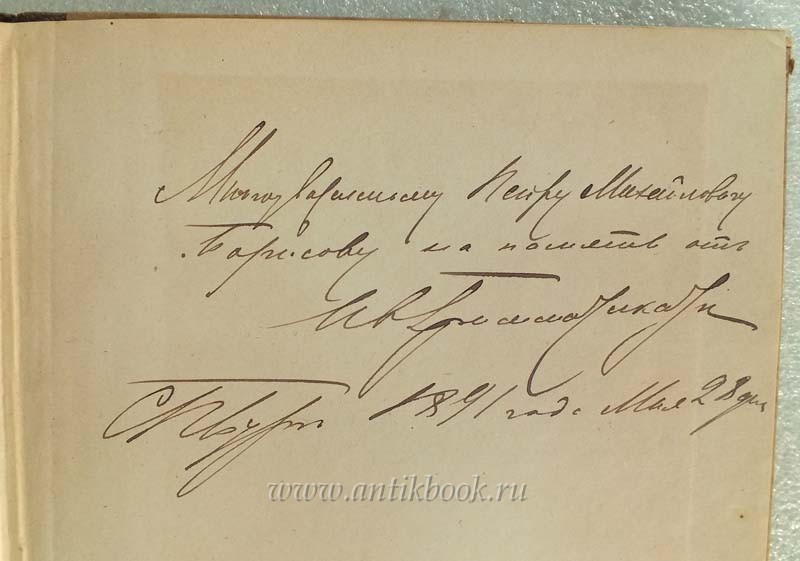 Многоуважаемому Петру Михайловичу
Борисову на память отъ
СПбургъ 1891 года Мая 28 дня
www.antikbook.ru